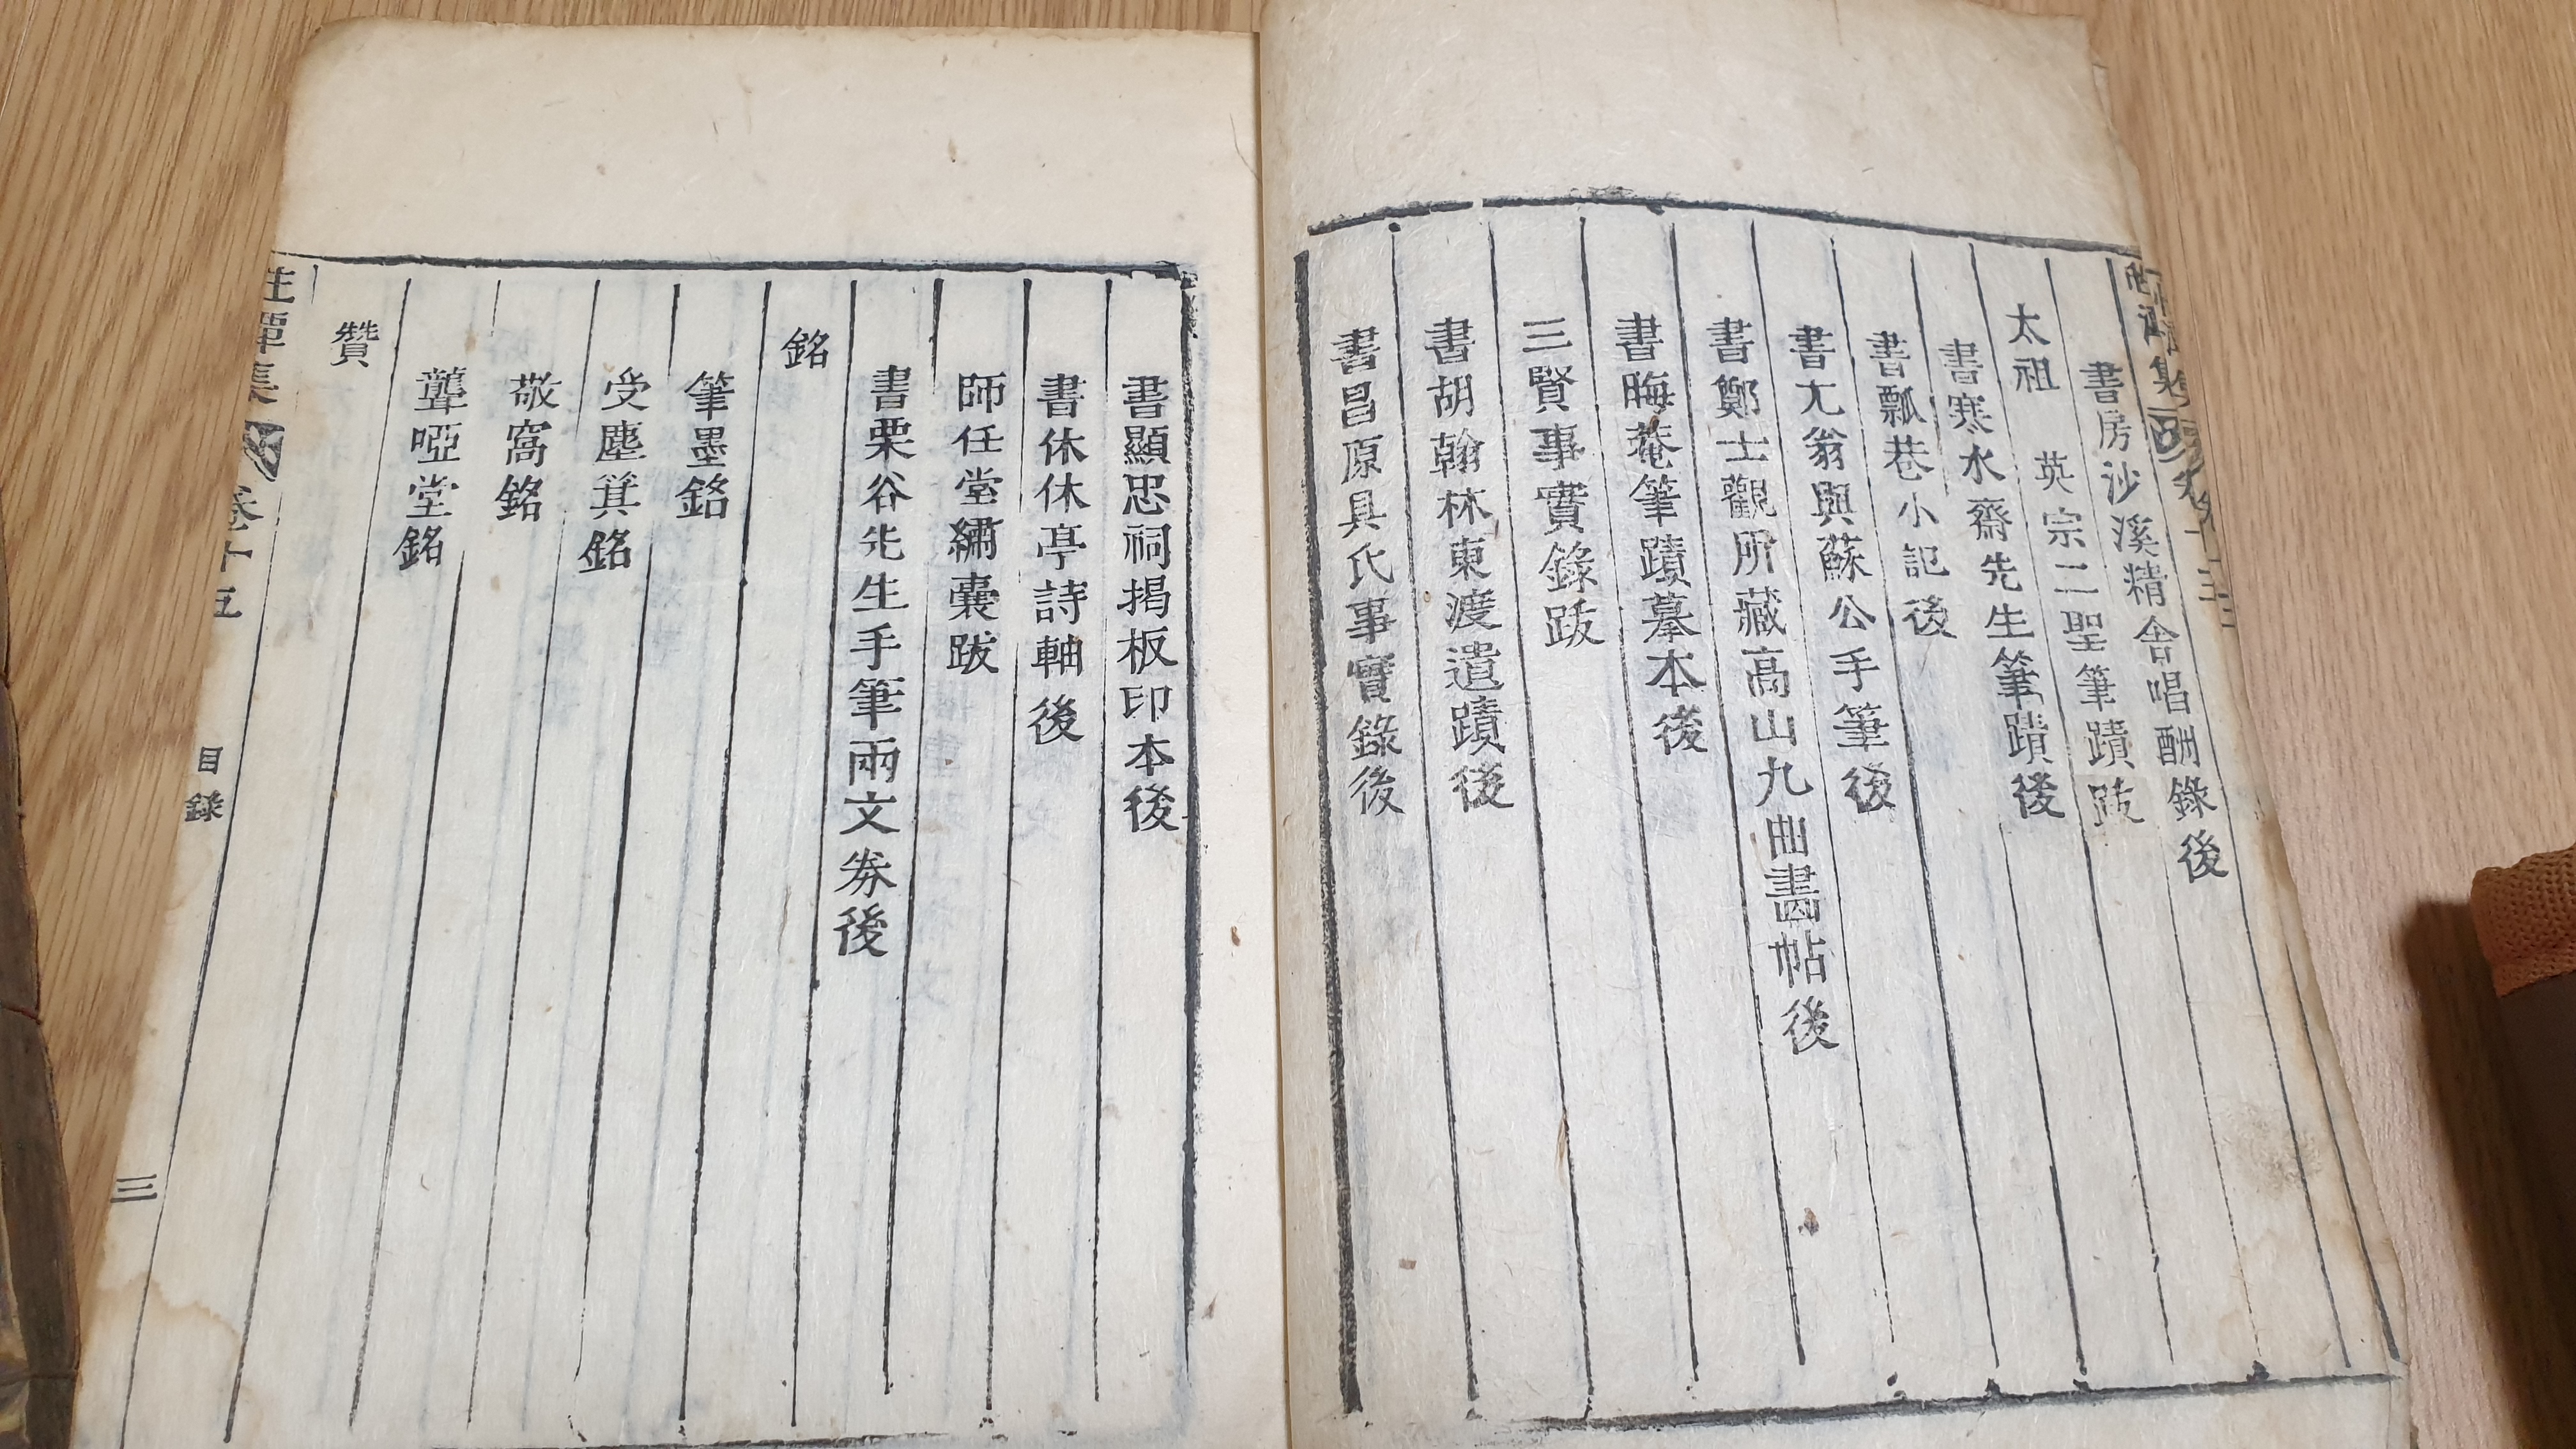 書房沙溪精舍唱酬錄後
太祖 英宗二聖筆蹟跋
書寒水齋先生筆蹟後
書瓢巷小記後
書尤翁與蘇公手筆後
書鄭士觀所藏高山九曲畵帖後
書晦菴筆蹟摹本後
三賢事實錄跋
書胡翰林東渡遺蹟後
書昌原具氏事實錄後
書顯忠祠揭板印本後
書休休亭詩軸後
師任堂繡囊跋
書栗谷先生手筆兩文券後
銘
筆墨銘
受塵箕銘
敬窩銘
聾啞堂銘
贊
集 卷十五 目錄 三